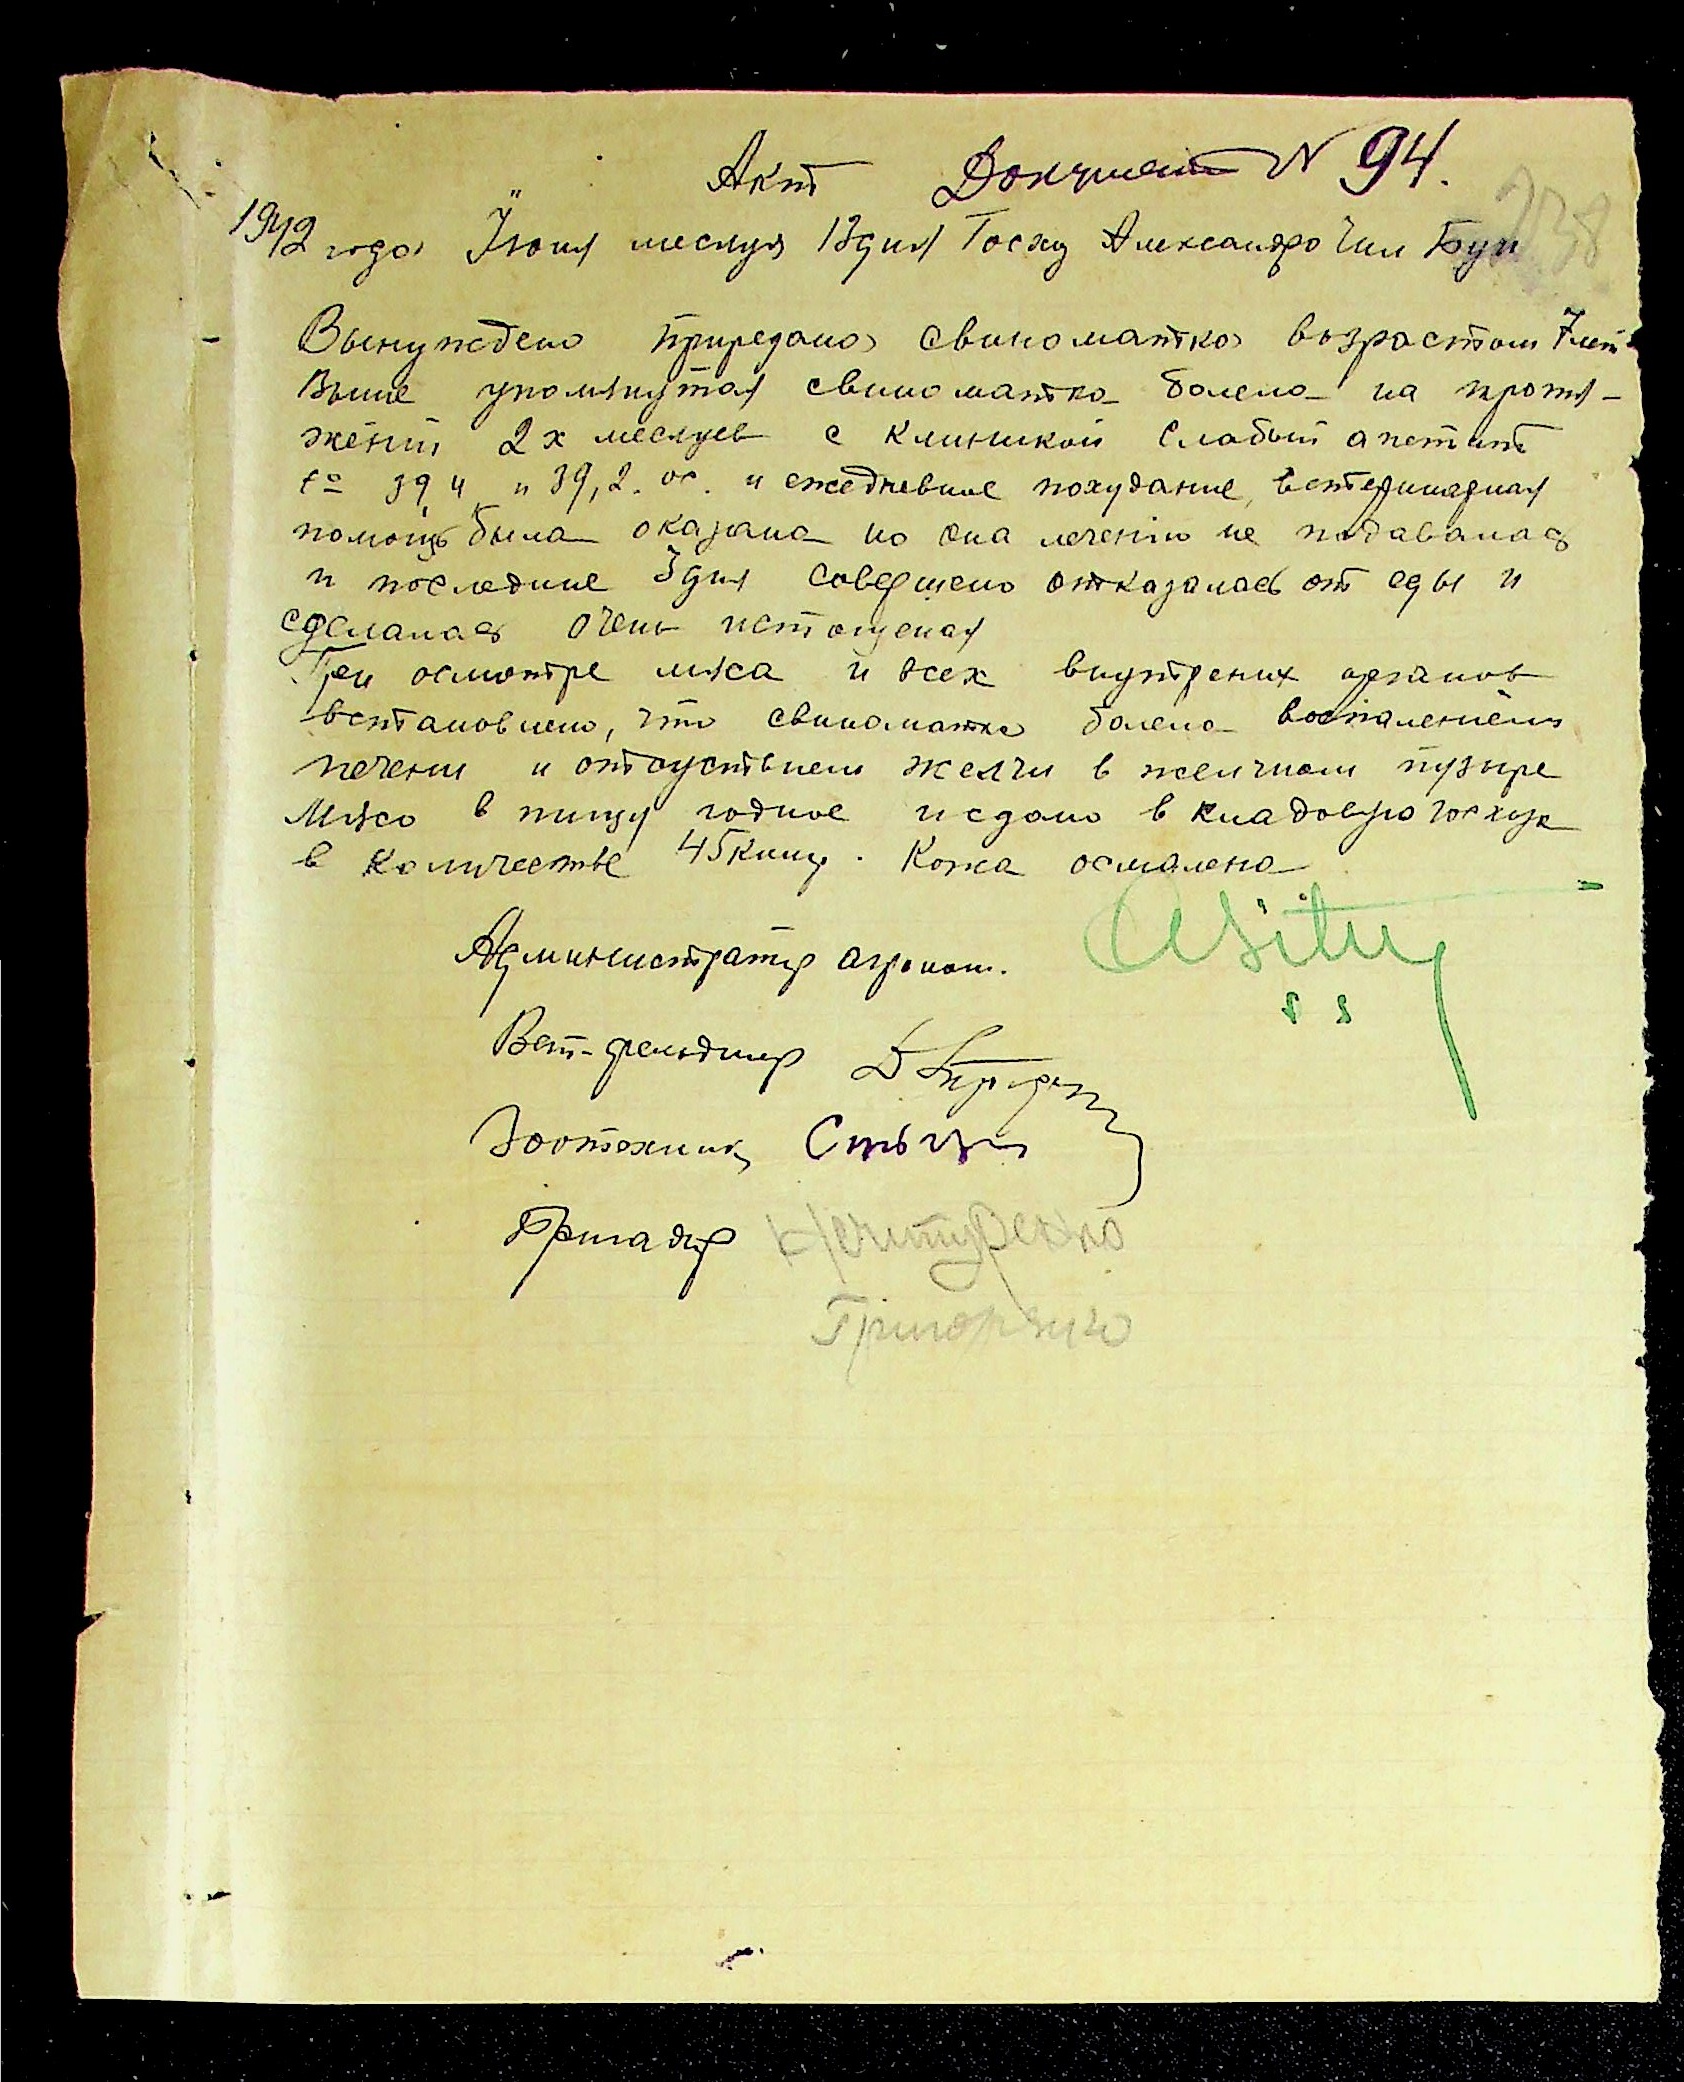 Акт Документ N 94.
1942 года Июня месяця 13 дня Госху Александро
Вынуждено прирезано свиноматко возрастом 7 лет
Выше упомянутая свиноматка болела на протя-
жении 2х месяцев с клиникой слабый апетит
t° 39,4 и 39,2. и ежедневное похудание, ветеринарная
помощь была оказана но она лечению не подавалась
и последние 3 дня совершено отказалась от еды и
сделалась очень истощеная
При осмотре мяса и всех внутрених органов
встановлено, что свиноматка болела воспалением
печени и отсуствием желчи в желчном пузыре
Мясо в пищу годное и сдано в кладовую
в количестве 45 килг. Кожа осмалена
Администратор агроном.
Вет-фельдшер
Зоотехник
Бригадир